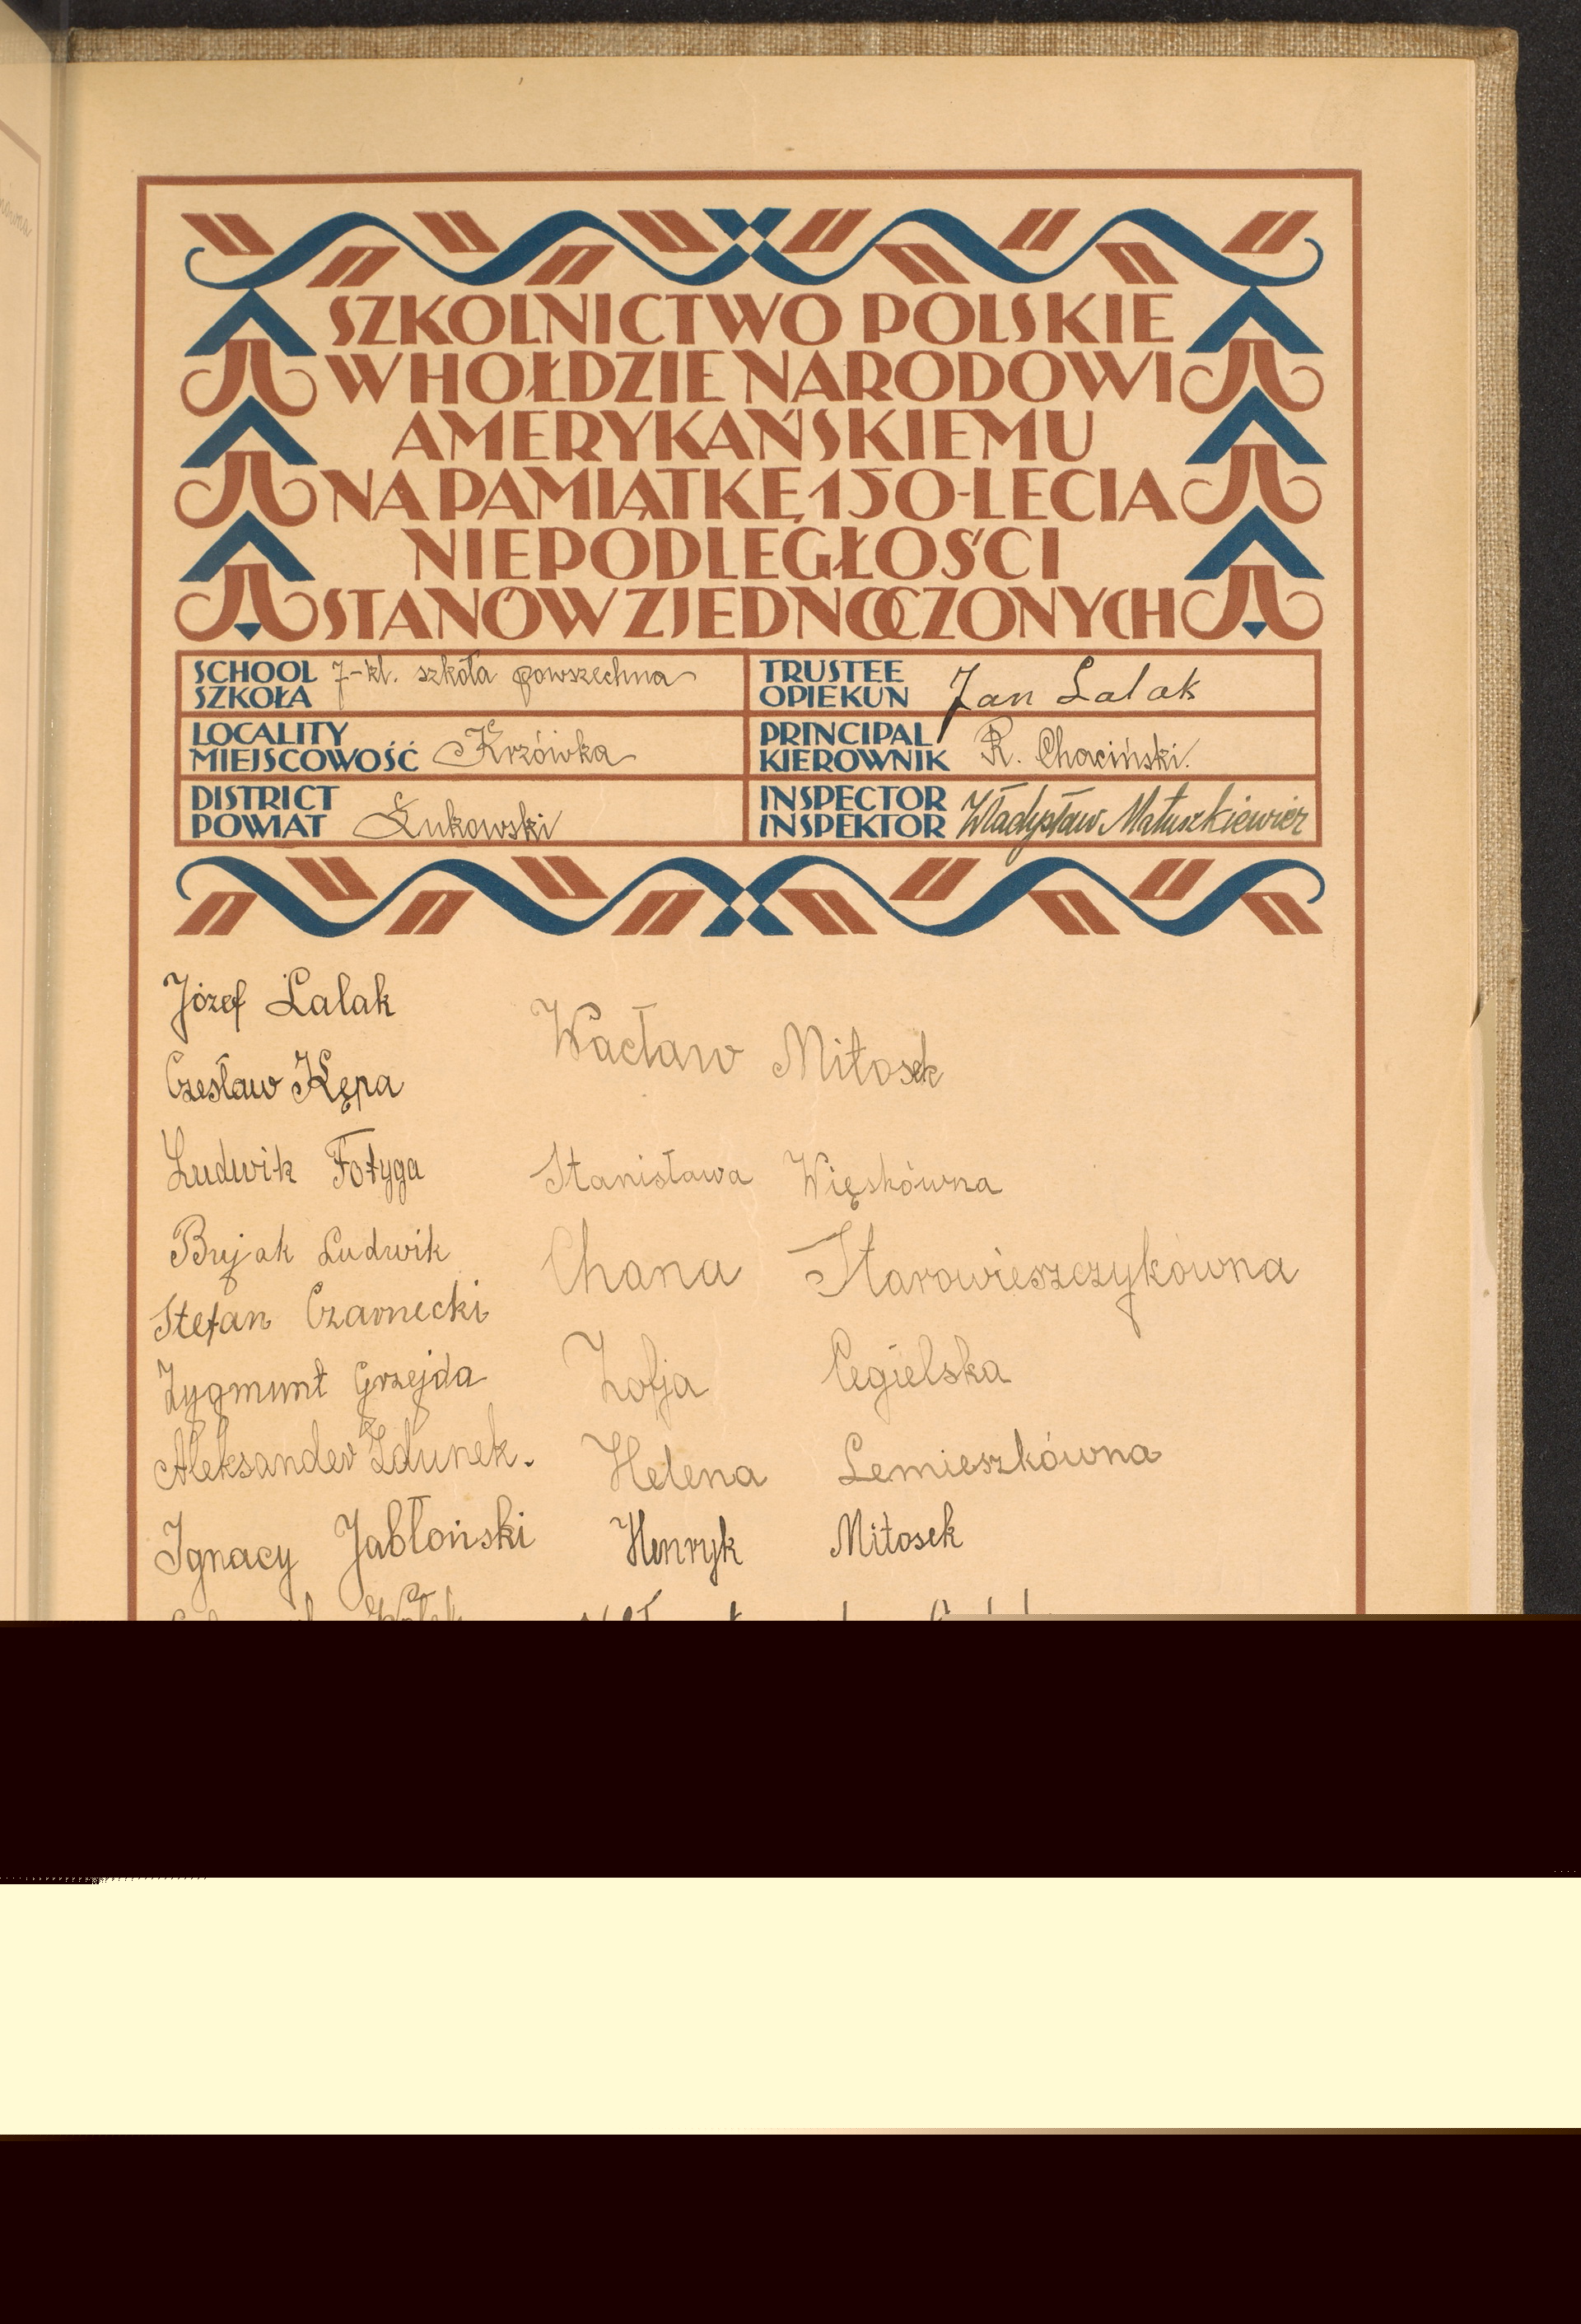 SZKOLNICTWO POLSKIE
W HOŁDZIE NARODOWI
AMERYKAŃSKIEMU
NA PAMIĄTKĘ 150-LECIA
NIEPODLEGŁOŚCI
STANÓW ZJEDNOCZONYCH
SCHOOL
SZKOŁA 7-kl. szkoła powszechna
TRUSTEE
OPIEKUN Jan Lalak
LOCALITY
MIEJSCOWOŚĆ Krzówka
PRINCIPAL
KIEROWNIK R. Chaciński.
DISTRICT
POWIAT Łukowski
INSPECTOR
INSPEKTOR Władysław Matuszkiewicz
Józef Lalak
Czesław Kępa
Ludwik Fotyga
Bujak Ludwik
Stefan Czarnecki
Zygmunt Grzejda
Aleksander Zdunek.
Ignacy Jabłoński
Wacław Miłosek
Stanisława Więskówna
Chana Starowieszczykówna
Zofja Cegielska
Helena Lemieszkówna
Henryk Miłosek